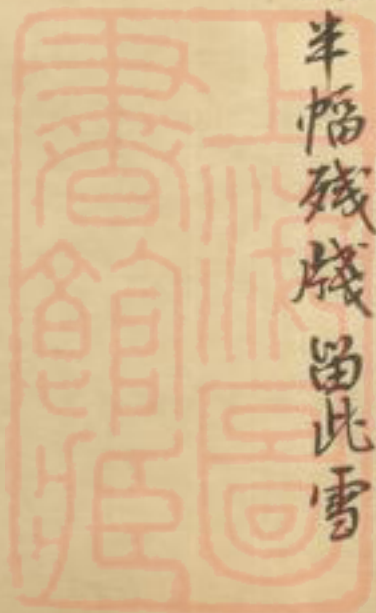 半幅残牋留此雪
上海圖書館藏